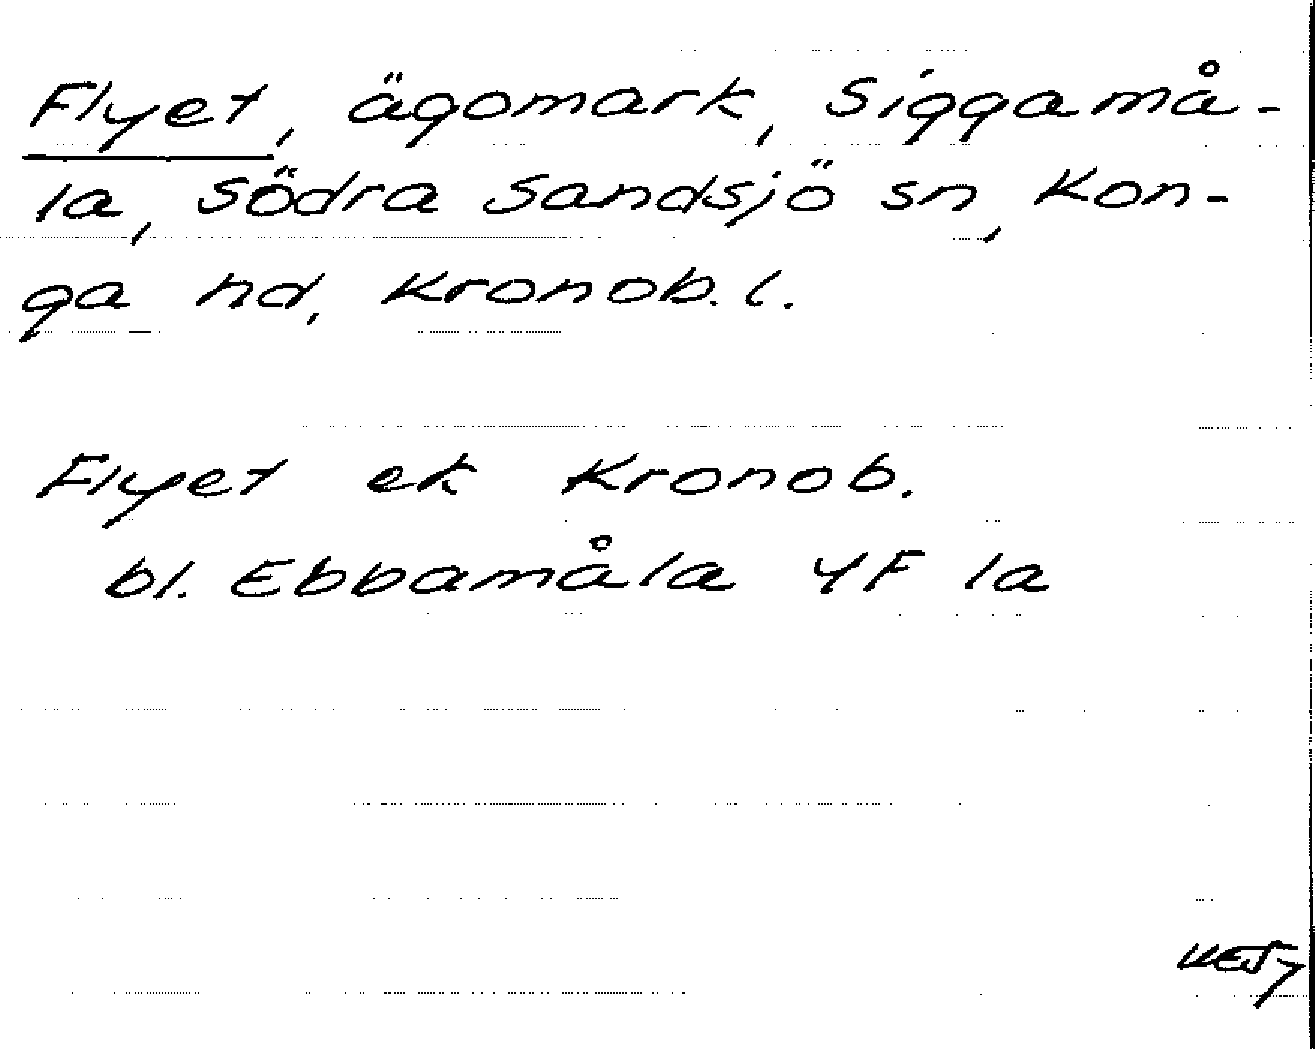 Flyet, ägomark, Siggamå-
la, Södra Sandsjö sn, Kon-
ga hd, Kronob. l.
Flyet ek Kronob.
bl. Ebbamåla 4F 1a